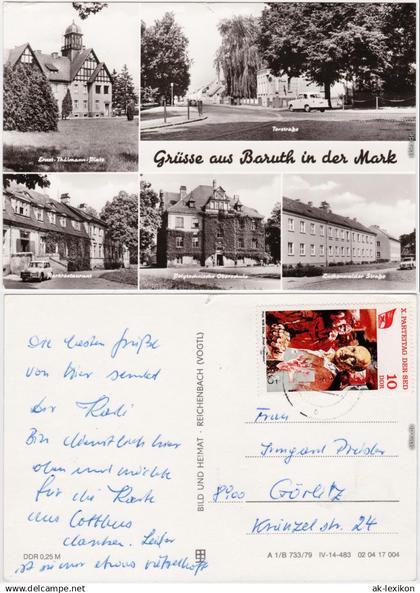 Ernst-Thälmann-Platz
Torstraße
Grüsse aus Baruth in der Mark
Parkrestaurant
Polytechnische Oberschule
Luckenwalder Straße
Die besten Grüße
von hier sendet
Dir
Bin dienstlich hier
oben und möchte
für die Karte
aus Cottbus
danken. Leider
ist sie nur etwas
BILD UND HEIMAT · REICHENBACH (VOGTL)
X. PARTEITAG DER SED
10
DDR
Frau
Irmgard
8900 Görlitz
str. 24
DDR 0,25 M
A 1/B 733/79 IV-14-483 02 04 17 004
ak-lexikon.de